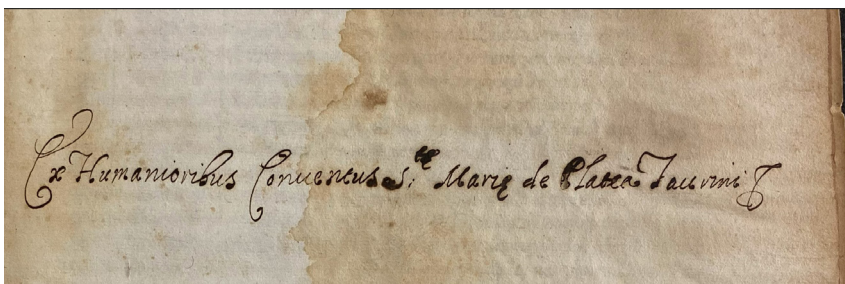 Ex Humanioribus Conventus S.tę Marię de Platea Taurini